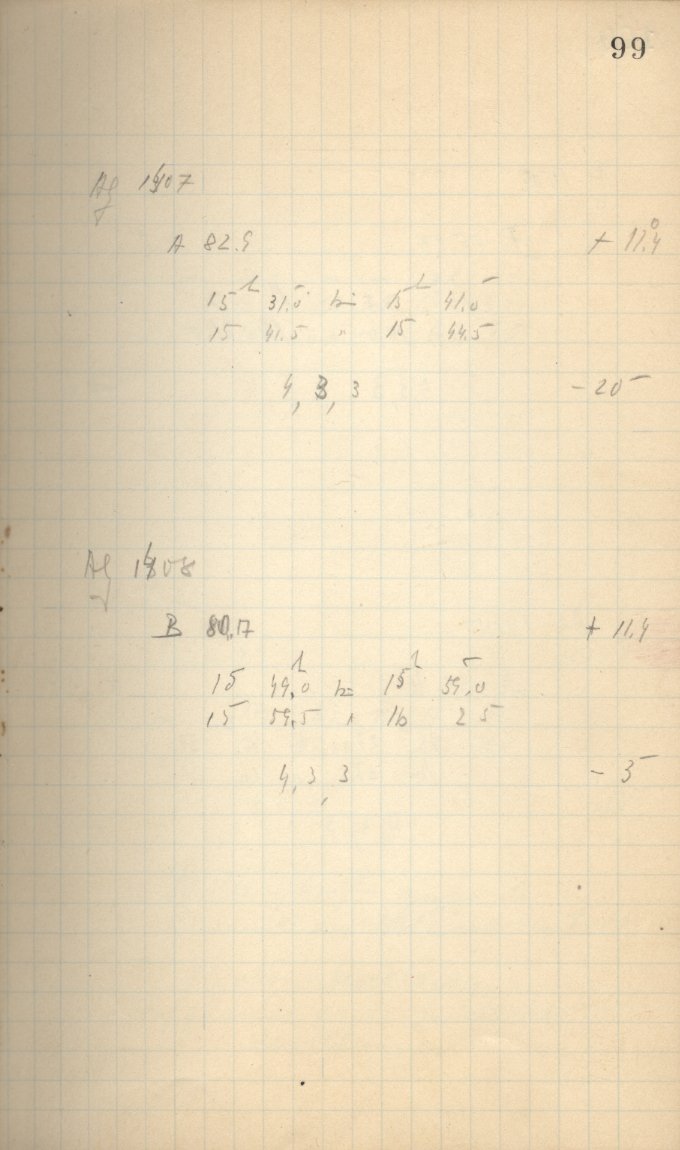 99
1407
A 82.9 + 11.4°
15ʰ 31.0 bis 15ʰ 41.5
15 41.5 " 15 44.5
4, 3, 3 - 20
1408
B 80.17 + 11.4
15 49.0ʰ bis 15ʰ 59.0
15 59.5 " 16 2 5
4, 3, 3 - 5